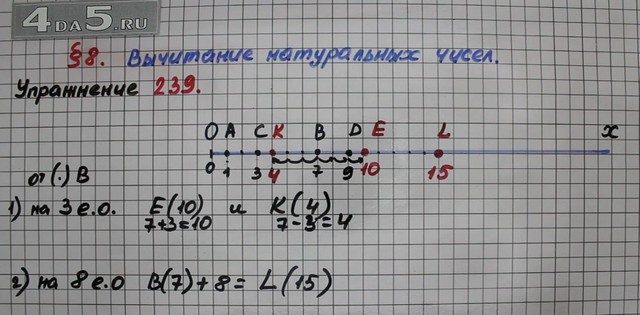 4DA5.RU
§8. Вычитание натуральных чисел.
Упражнение 239.
O A C K B D E L x
0 1 3 4 7 9 10 15
от (·) B
1) на 3 е.о. E(10) и K(4)
7+3=10 7-3=4
2) на 8 е.о B(7)+8= L(15)